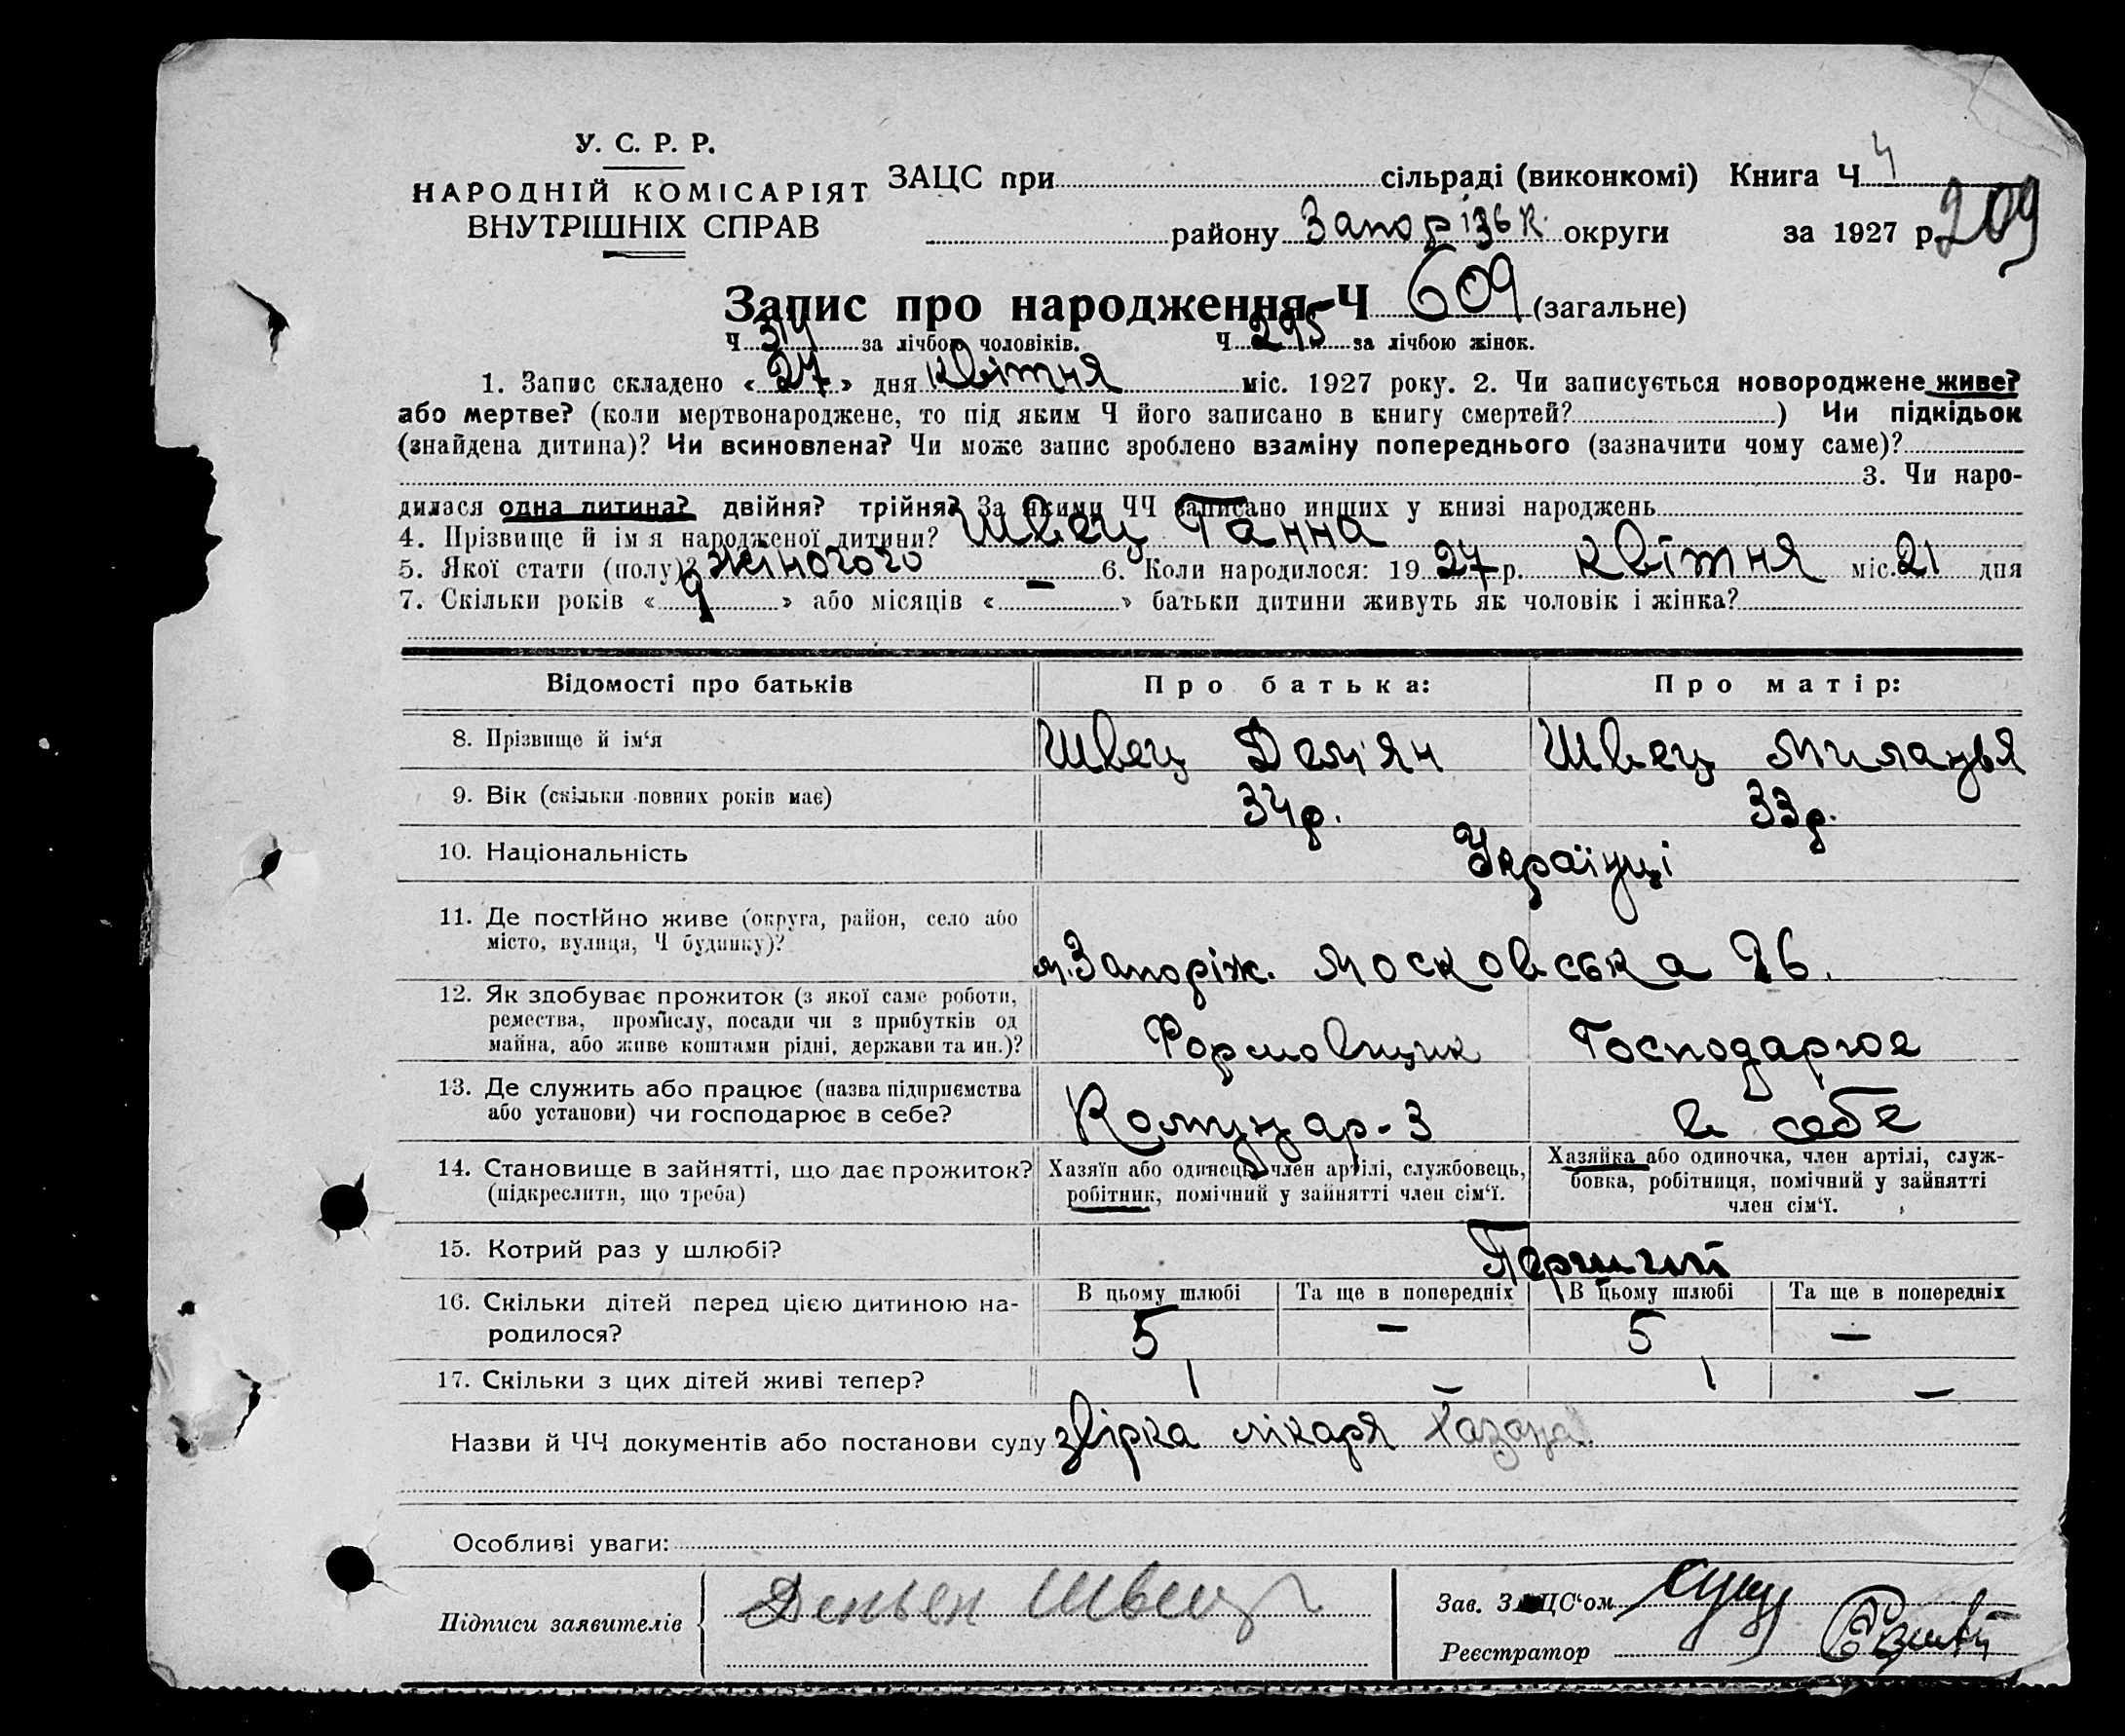 У. С. Р. Р.
НАРОДНІЙ КОМІСАРІЯТ
ВНУТРІШНІХ СПРАВ
ЗАЦС при сільраді (виконкомі) Книга Ч 4
району Запорізьк. округи за 1927 р. 209
Запис про народження Ч 609 (загальне)
Ч 314 за лічбою чоловіків. Ч 295 за лічбою жінок.
1. Запис складено «27» дня квітня міс. 1927 року. 2. Чи записується новороджене живе?
або мертве? (коли мертвонароджене, то під яким Ч його записано в книгу смертей? ) Чи підкідьок
(знайдена дитина)? Чи всиновлена? Чи може запис зроблено взаміну попереднього (зазначити чому саме)?
3. Чи наро-
дилася одна дитина? двійня? трійня? За якими ЧЧ записано инших у книзі народжень
4. Прізвище й ім я народженої дитини? Швец Ганна
5. Якої стати (полу)? жіночого 6. Коли народилося: 1927 р. квітня міс. 21 дня
7. Скільки років «9» або місяців «—» батьки дитини живуть як чоловік і жінка?
Відомості про батьків Про батька: Про матір:
8. Прізвище й ім‘я Швец Дем'ян Швец Миланья
9. Вік (скільки повних років має) 34р. 33р.
10. Національність Українці
11. Де постійно живе (округа, район, село або
місто, вулиця, Ч будинку)? м. Запоріж. Московська 26.
12. Як здобуває прожиток (з якої саме роботи,
ремества, промислу, посади чи з прибутків од
майна, або живе коштами рідні, держави та ин.)? Формовщик Господарюе
13. Де служить або працює (назва підприємства
або установи) чи господарює в себе? Комунар-3 в себе
14. Становище в зайнятті, що дає прожиток?
(підкреслити, що треба)
Хазяїн або одинець, член артілі, службовець,
робітник, помічний у зайнятті член сім‘ї.
Хазяйка або одиночка, член артілі, служ-
бовка, робітниця, помічний у зайнятті
член сім‘ї.
15. Котрий раз у шлюбі? Перший
16. Скільки дітей перед цією дитиною на-
родилося?
В цьому шлюбі Та ще в попередніх В цьому шлюбі Та ще в попередніх
5 — 5 —
17. Скільки з цих дітей живі тепер? 1 — 1 —
Назви й ЧЧ документів або постанови суду звірка лікаря
Особливі уваги:
Підписи заявителів Демьен Швец
Зав. ЗАЦС‘ом
Реєстратор